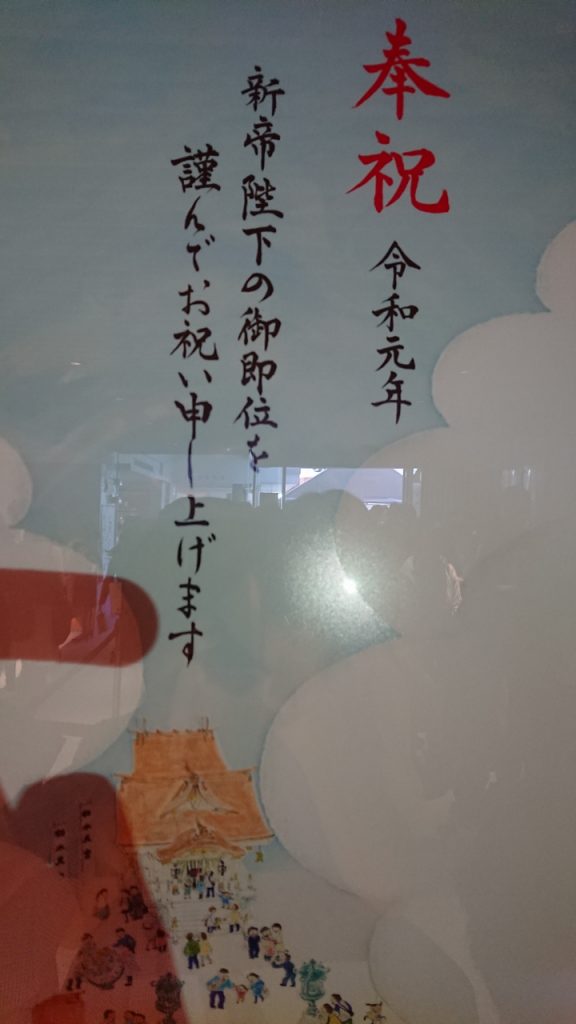 奉祝
令和元年
新帝陛下の御即位を
謹んでお祝い申し上げます